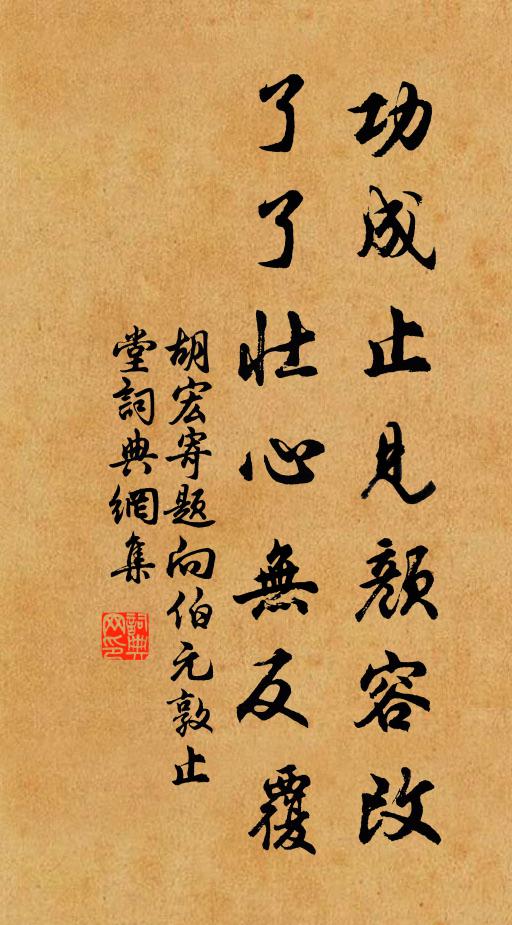 功成止見顏容改
了了壯心無反覆
胡宏寄題向伯元敦止
堂詞典網集
詞典網印